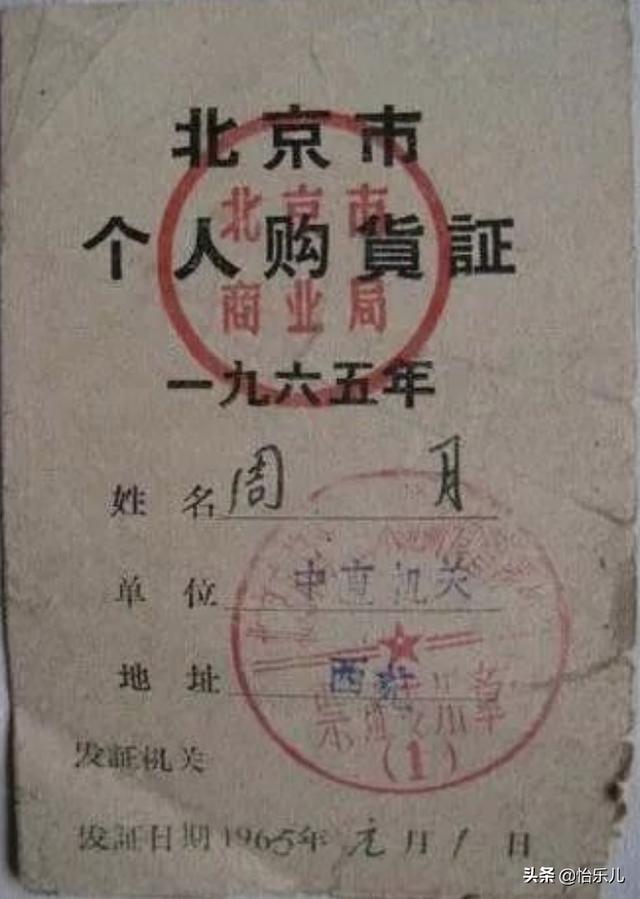 北京市
个人购貨証
北京市
商业局
一九六五年
姓 名 周 月
单 位 中直机关
地 址 西
发証机关
(1)
发証日期1965年元月1日
头条 @怡乐儿